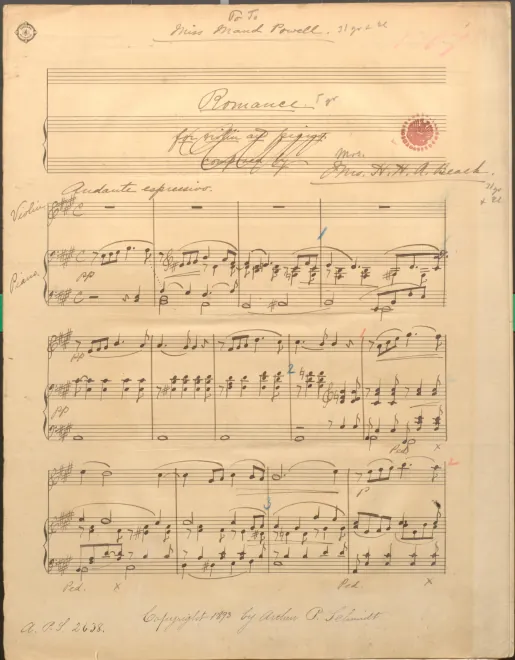 To
Miss Maud Powell.
Romance
for violin and piano.
composed by
Mrs.
Mrs. H. H. A. Beach.
Andante espressivo.
Violin
Piano
pp
1
pp
pp
2
1
Ped. x
2
3
p
Ped. x
Ped. x
Copyright 1893 by Arthur P. Schmidt
A. P. S. 2638.